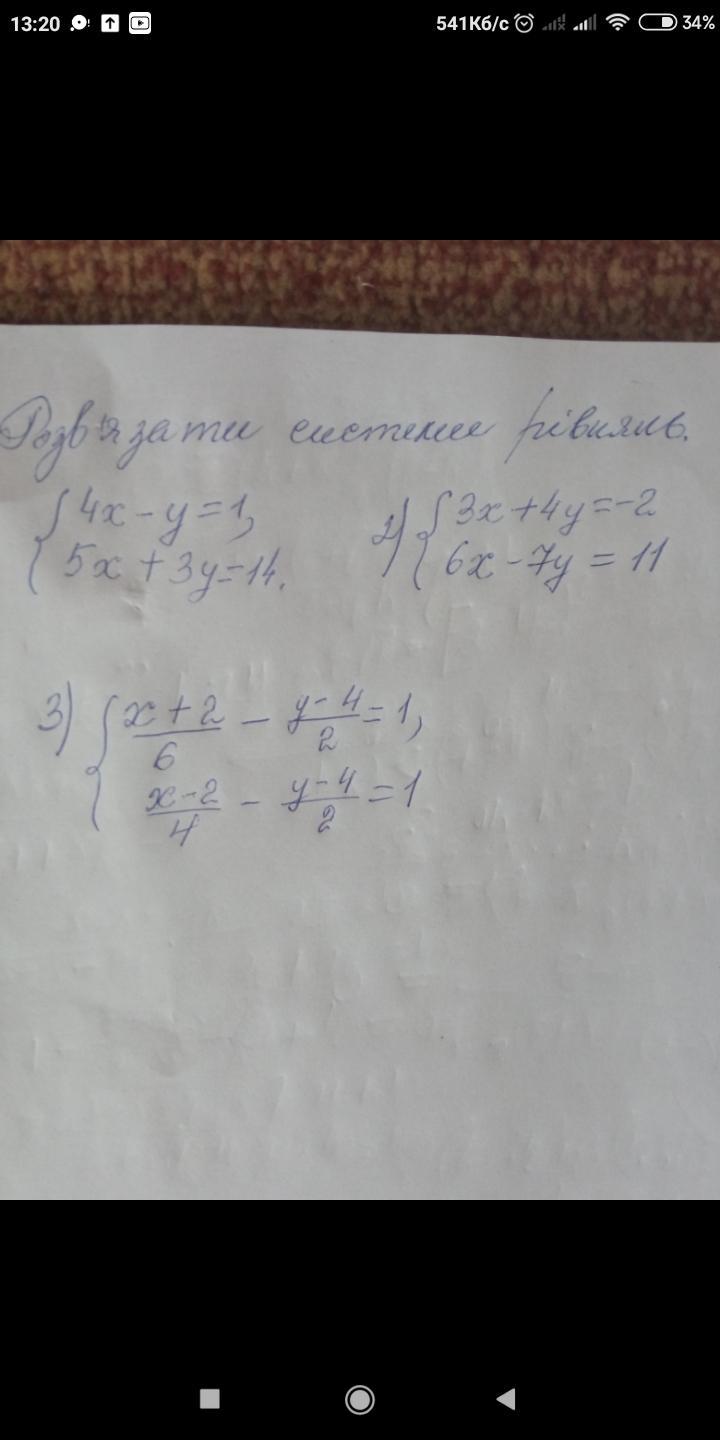 13:20 541Кб/с 34%
Розв'язати системи рівнянь.
{ 4x - y = 1,
5x + 3y = 14.
2) { 3x + 4y = -2
6x - 7y = 11
3) { (x + 2)/6 - (y - 4)/2 = 1,
(x - 2)/4 - (y - 4)/2 = 1